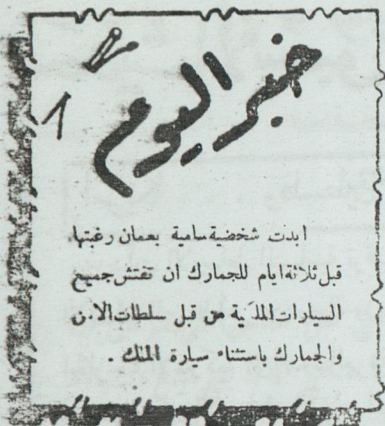 خبر اليوم
ابدت شخصية سامية بعمان رغبتها
قبل ثلاثة ايام للجمارك ان تفتش جميع
السيارات الملكية من قبل سلطات الامن
والجمارك باستثناء سيارة الملك .